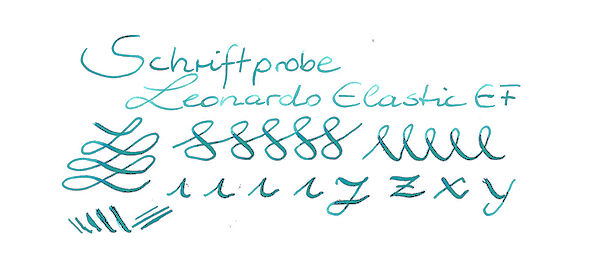 Schriftprobe
Leonardo Elastic EF
ı ı ı ı y z x y